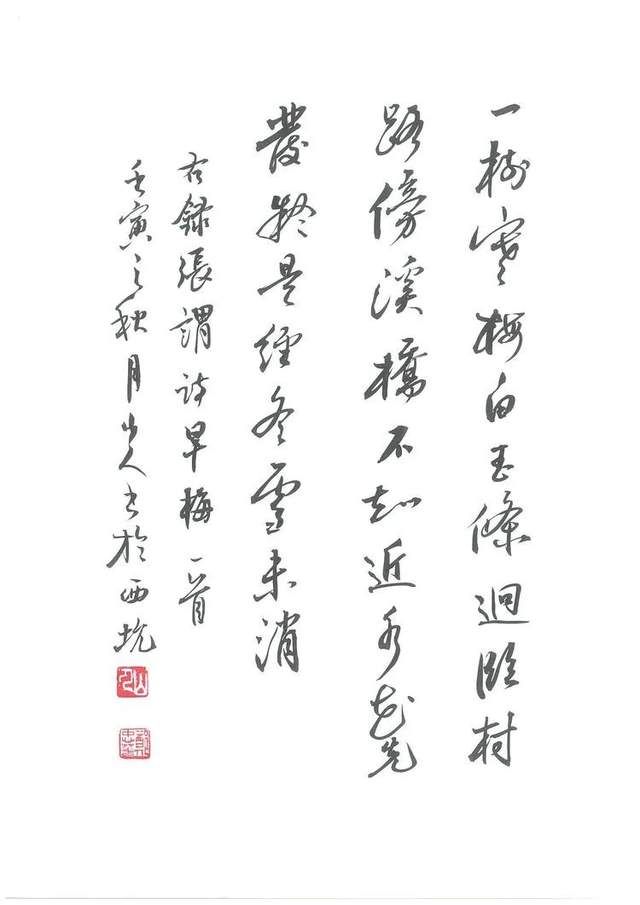 一樹寒梅白玉條迥臨村
路傍溪橋不知近水花先
發疑是經冬雪未消
右錄張謂詩早梅一首
壬寅之秋月山人書於西坑
山人